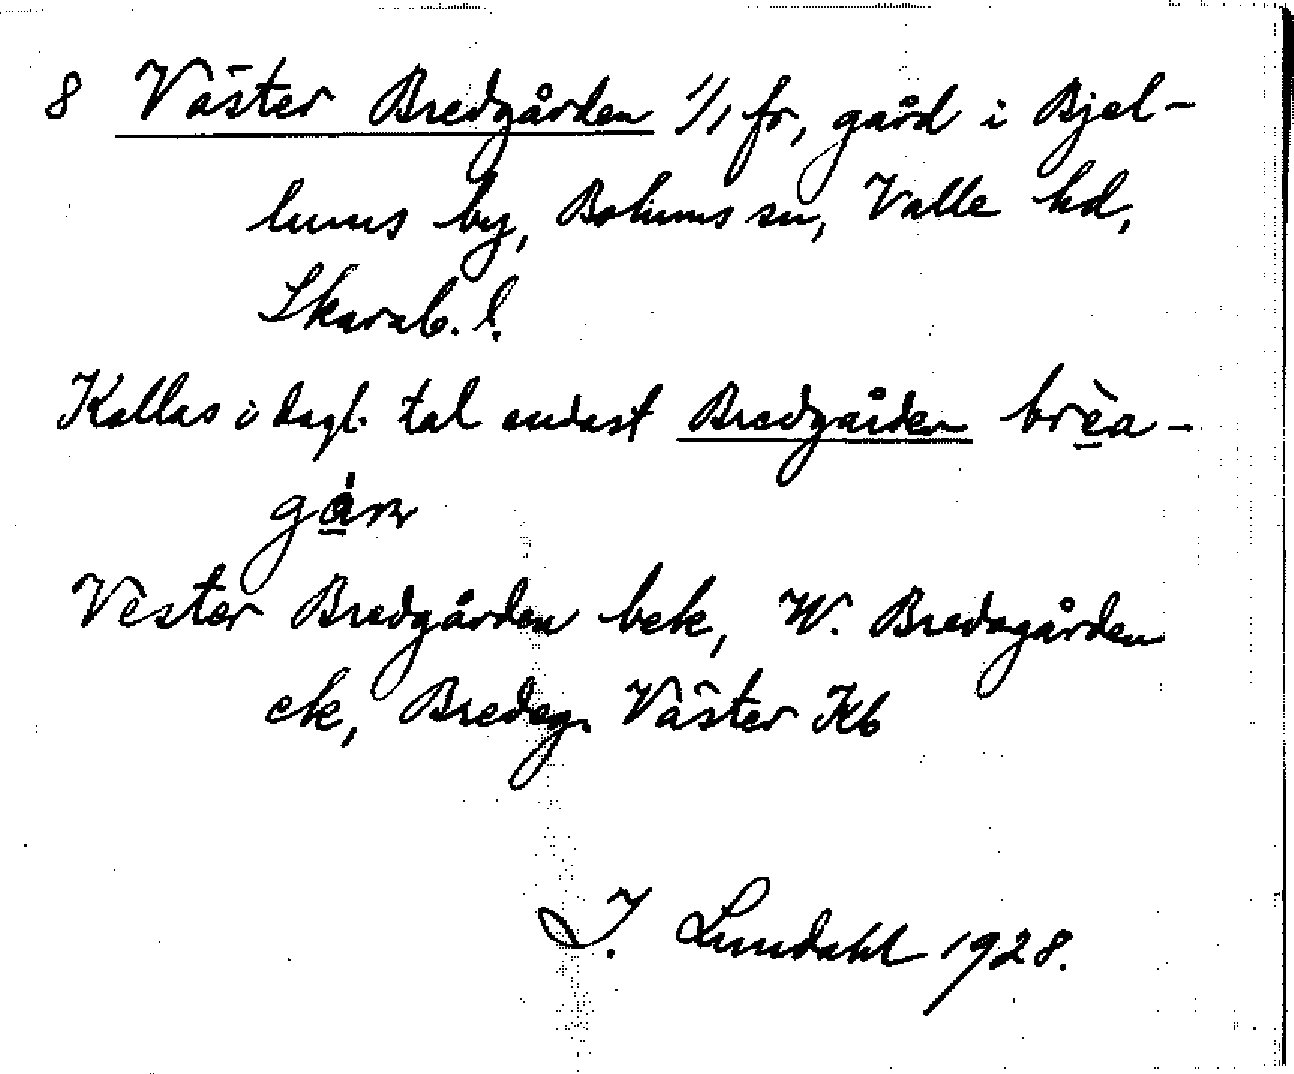 8 Väster Bredgården 1/1 fr, gård i Bjel-
lums by, Bolums sn, Valle hd,
Skarab. l.
Kallas i dagl. tal endast Bredgården brèa-
gán
Vester Bredgården bek, W. Bredagården
ek, Bredeg. Väster Kb
I. Lundahl 1928.